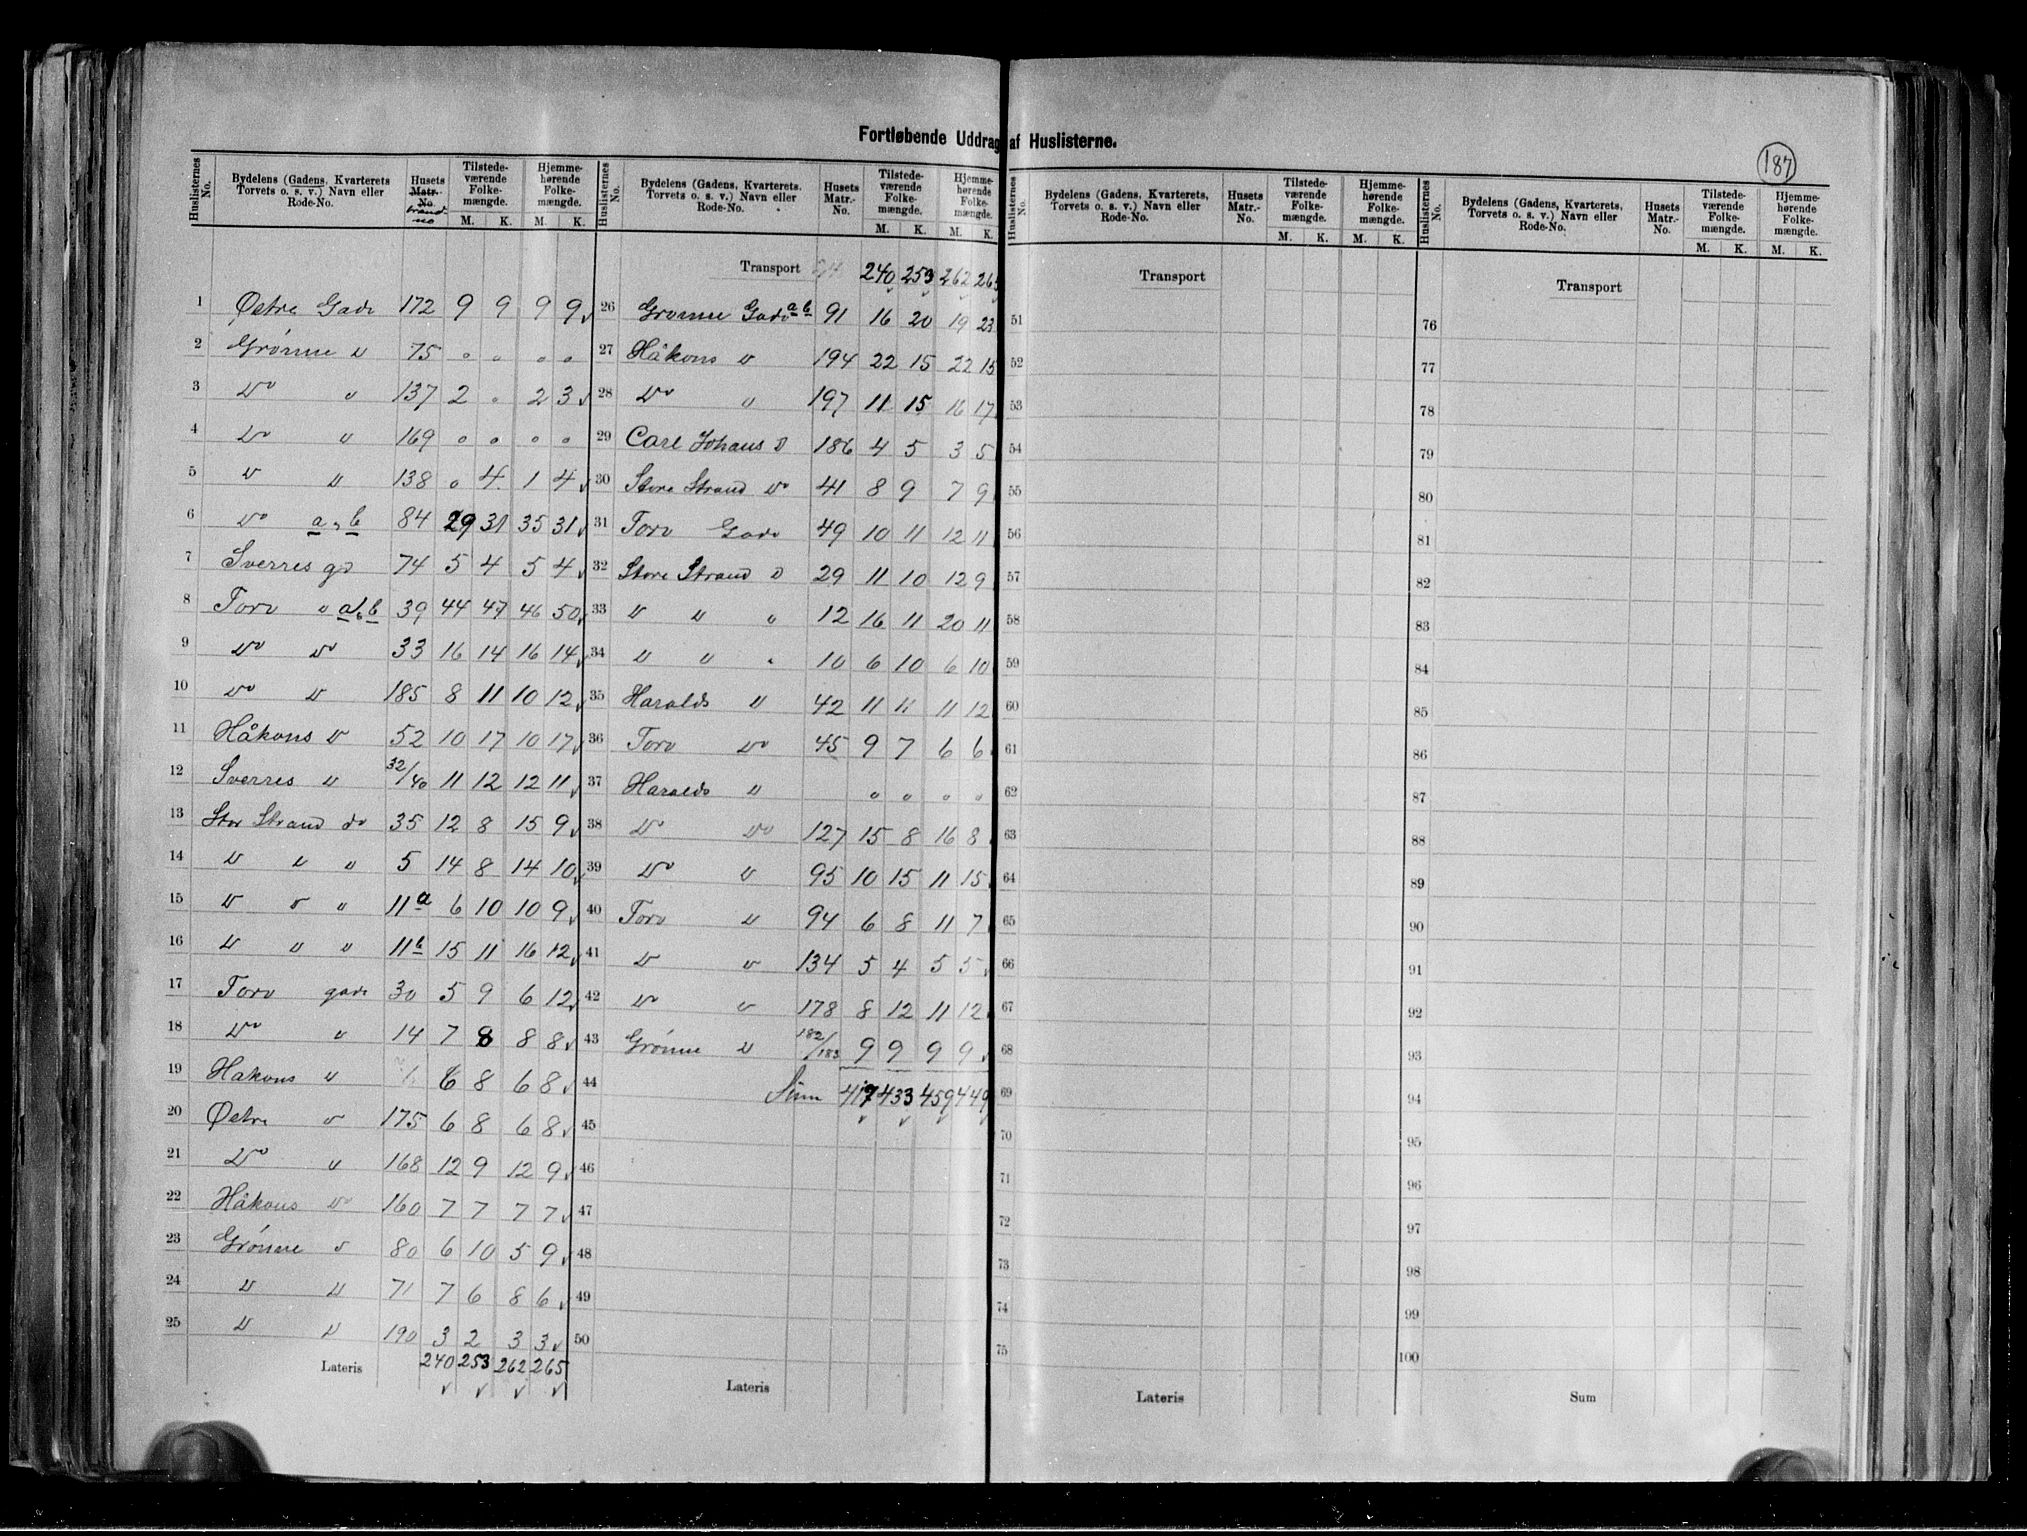 Fortløbende Uddrag af Huslisterne.
187
Huslisternes No. Bydelens (Gadens, Kvarterets Torvets o. s. v.) Navn eller Rode-No. Husets Matr.-No. brand no Tilstede-værende Folke-mængde. M. K. Hjemme-hørende Folke-mængde. M. K.
1 Østre Gade 172 9 9 9 9
2 Grønne do 75 0 0 0 0
3 do " 137 2 0 2 3
4 do " 169 0 0 0 0
5 do " 138 0 4 1 4
6 do a, b 84 29 31 35 31
7 Sverres gd 74 5 4 5 4
8 Torv " a/b 39 44 47 46 50
9 do do 33 16 14 16 14
10 do " 185 8 11 10 12
11 Håkons do 52 10 17 10 17
12 Sverres " 32/40 11 12 12 11
13 Stor Strand do 35 12 8 15 9
14 " " " 5 14 8 14 10
15 " " " 11a 6 10 10 9
16 " " " 11b 15 11 16 12
17 Torv gade 30 5 9 6 12
18 do " 14 7 8 8 8
19 Hakons " 6 8 6 8
20 Østre " 175 6 8 6 8
21 do " 168 12 9 12 9
22 Håkons do 160 7 7 7 7
23 Grönne " 80 6 10 5 9
24 " " 71 7 6 8 6
25 " " 190 3 2 3 3
Lateris 240 253 262 265
Huslisternes No. Bydelens (Gadens, Kvarterets, Torvets o. s. v.) Navn eller Rode-No. Husets Matr.-No. Tilstede-værende Folke-mængde. M. K. Hjemme-hørende Folke-mængde. M. K.
Transport 240 253 262 265
26 Grønne Gade a b 91 16 20 19 23
27 Håkons " 194 22 15 22 15
28 do " 197 11 15 16 17
29 Carl Johans " 186 4 5 3 5
30 Store Strand do 41 8 9 7 9
31 Torv Gade 49 10 11 12 11
32 Store Strand " 29 11 10 12 9
33 " " " 12 16 11 20 11
34 " " " 10 6 10 6 10
35 Haralds " 42 11 11 11 12
36 Torv do 45 9 7 6 6
37 Haralds " 0 0 0 0
38 do do 127 15 8 16 8
39 do " 95 10 15 11 15
40 Torv " 94 6 8 11 7
41 " " 134 5 4 5 5
42 do " 178 8 12 11 12
43 Grönne " 182/183 9 9 9 9
44 Sum 417 433 459 449
45
46
47
48
49
50
Lateris
Huslisternes No. Bydelens (Gadens, Kvarterets, Torvets o. s. v.) Navn eller Rode-No. Husets Matr.-No. Tilstede-værende Folke-mængde. M. K. Hjemme-hørende Folke-mængde. M. K.
Transport
51
52
53
54
55
56
57
58
59
60
61
62
63
64
65
66
67
68
69
70
71
72
73
74
75
Lateris
Huslisternes No. Bydelens (Gadens, Kvarterets, Torvets o. s. v.) Navn eller Rode-No. Husets Matr.-No. Tilstede-værende Folke-mængde. M. K. Hjemme-hørende Folke-mængde. M. K.
Transport
76
77
78
79
80
81
82
83
84
85
86
87
88
89
90
91
92
93
94
95
96
97
98
99
100
Sum